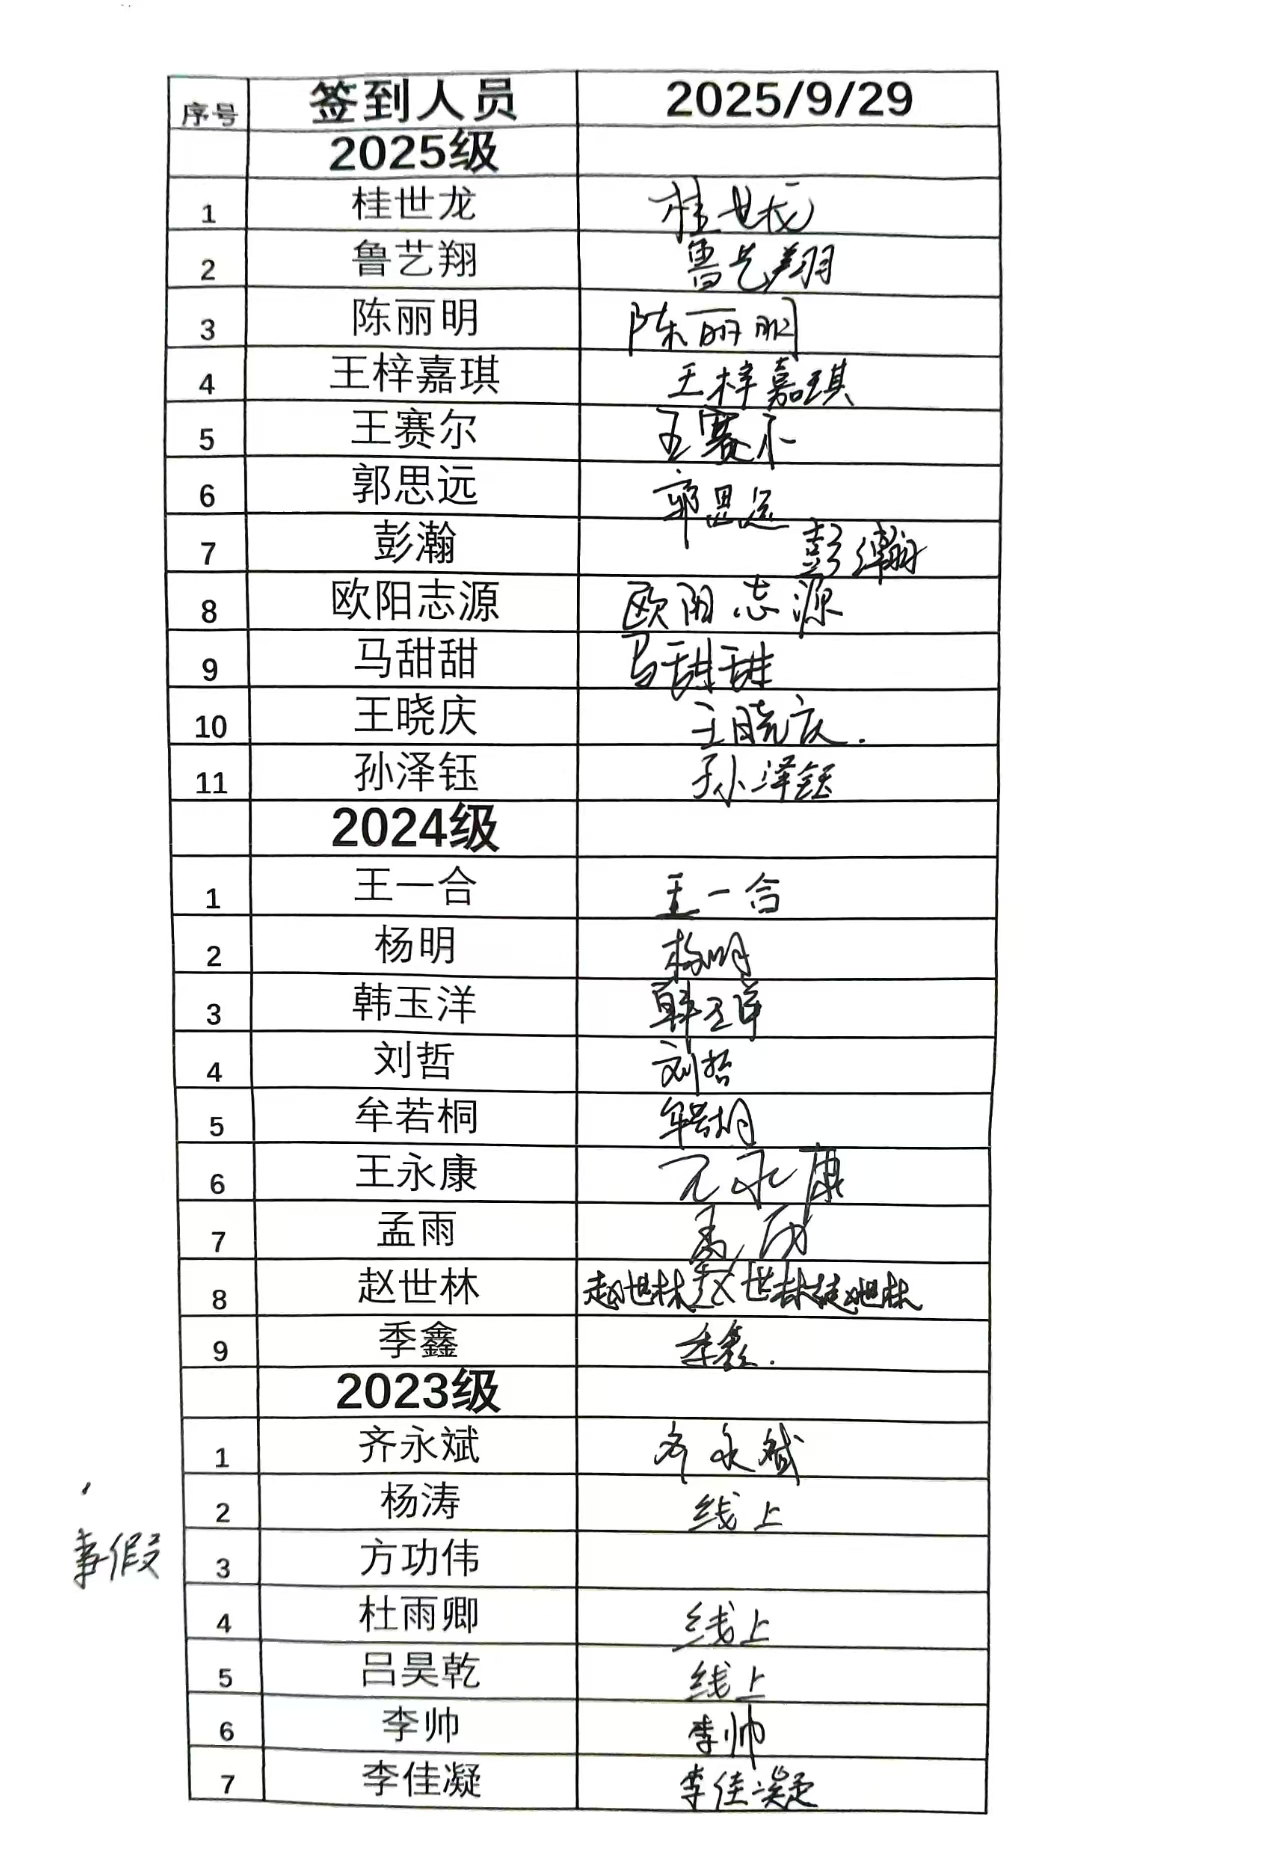 序号 签到人员 2025/9/29
2025级
1 桂世龙 桂世龙
2 鲁艺翔 鲁艺翔
3 陈丽明 陈丽明
4 王梓嘉琪 王梓嘉琪
5 王赛尔 王赛尔
6 郭思远 郭思远
7 彭瀚 彭瀚
8 欧阳志源 欧阳志源
9 马甜甜 马甜甜
10 王晓庆 王晓庆.
11 孙泽钰 孙泽钰
2024级
1 王一合 王一合
2 杨明 杨明
3 韩玉洋 韩玉洋
4 刘哲 刘哲
5 牟若桐 牟若桐
6 王永康 王永康
7 孟雨 孟雨
8 赵世林 赵世林 赵世林 赵世林
9 季鑫 季鑫.
2023级
1 齐永斌 齐永斌
2 杨涛 线上
事假 3 方功伟
4 杜雨卿 线上
5 吕昊乾 线上
6 李帅 李帅
7 李佳凝 李佳凝